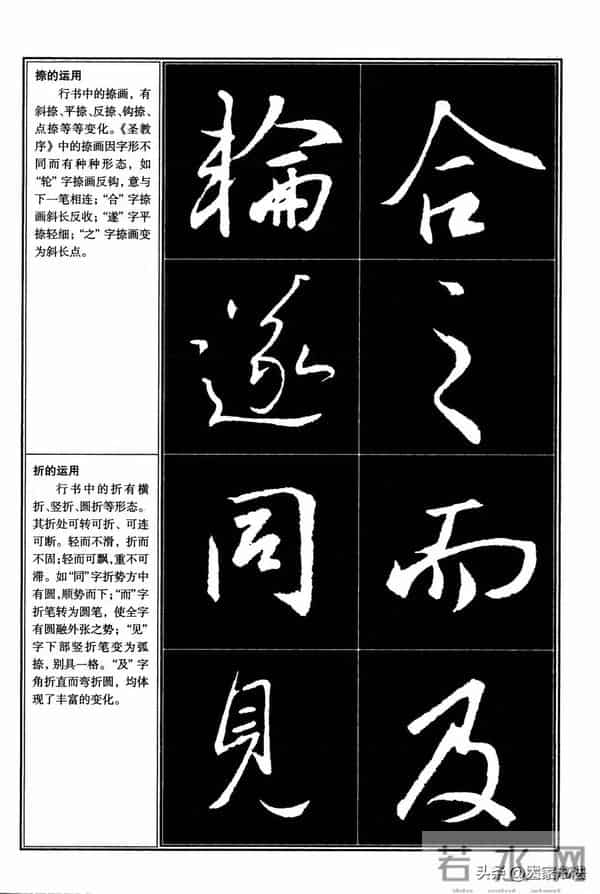 捺的运用
行书中的捺画，有
斜捺、平捺、反捺、钩捺、
点捺等等变化。《圣教
序》中的捺画因字形不
同而有种种形态，如
“轮”字捺画反钩，意与
下一笔相连；“合”字捺
画斜长反收；“遂”字平
捺轻细；“之”字捺画变
为斜长点。
輪 合
遂 之
折的运用
行书中的折有横
折、竖折、圆折等形态。
其折处可转可折、可连
可断。轻而不滑，折而
不固；轻而可飘，重不可
滞。如“同”字折势方中
有圆，顺势而下；“而”字
折笔转为圆笔，使全字
有圆融外张之势；“见”
字下部竖折笔变为弧
捺，别具一格。“及”字
角折直而弯折圆，均体
现了丰富的变化。
同 而
見 及
若水网